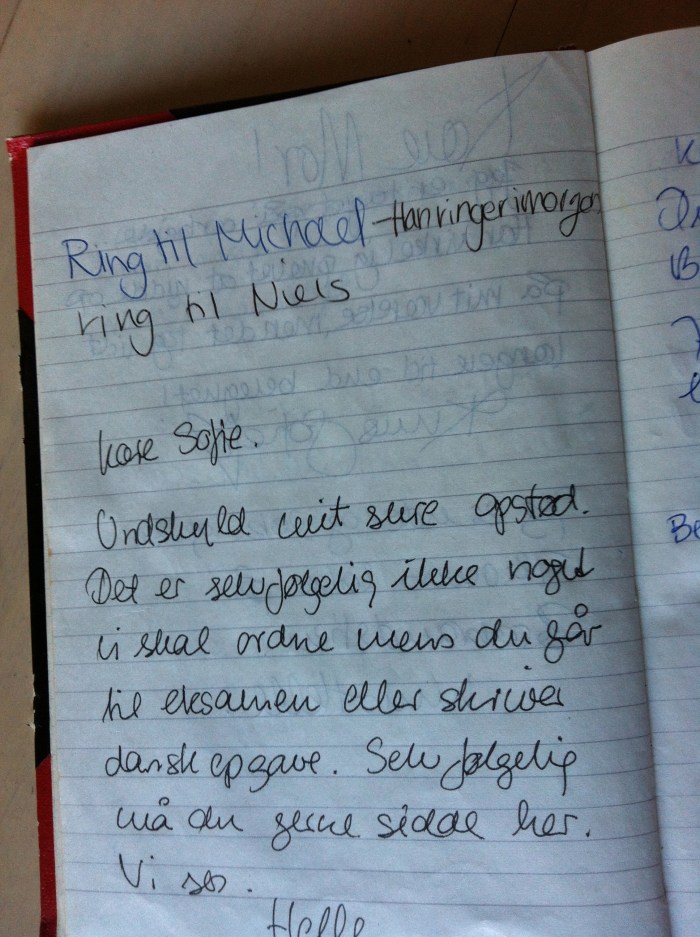 Ring til Michael - Han ringer i morgen
ring til Niels
kære Sofie.
Undskyld mit sure opstød.
Det er selvfølgelig ikke noget
vi skal ordne mens du går
til eksamen eller skriver
dansk opgave. Selvfølgelig
må du gerne sidde her.
Vi ses.
Helle